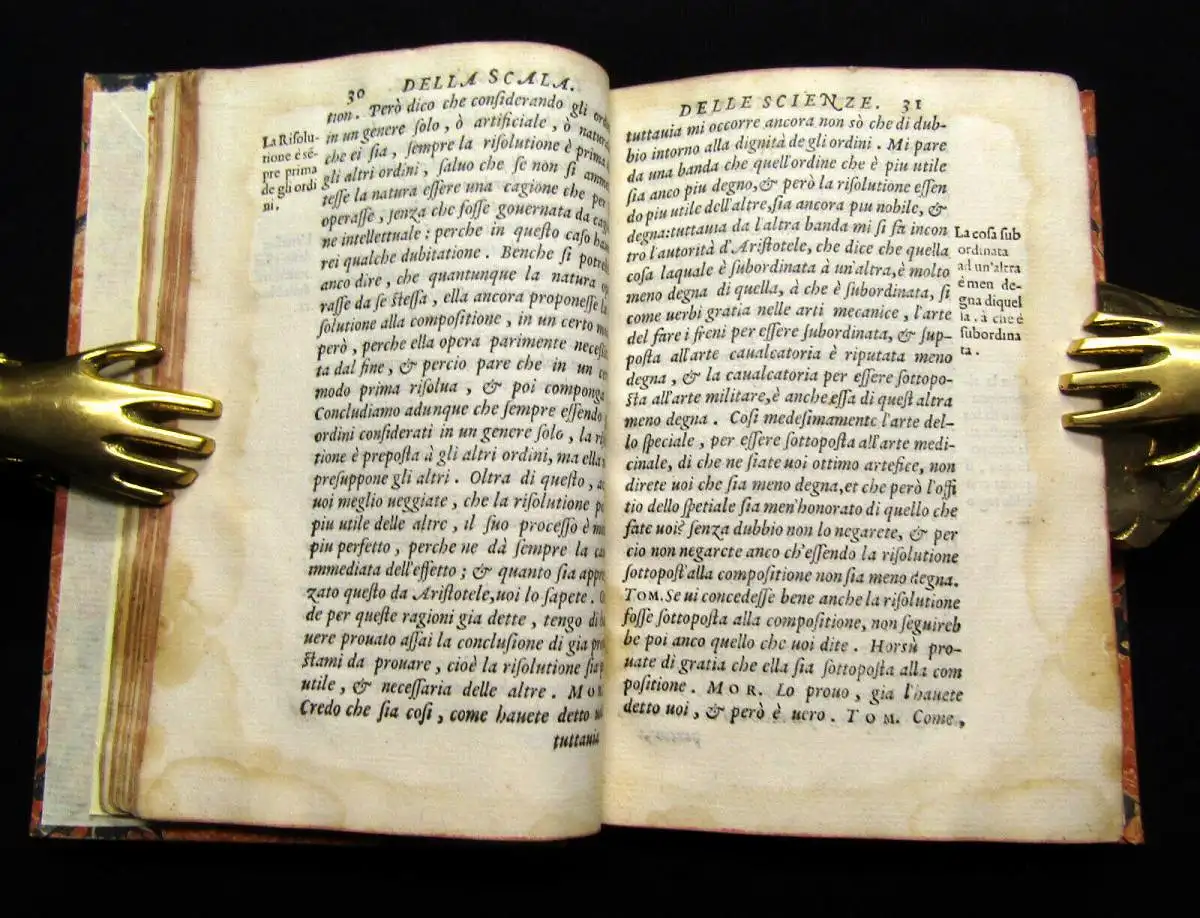 30 DELLA SCALA.
tion. Però dico che considerando gli
in un genere solo, ò artificiale, ò
che ei sia, sempre la risolutione è prima
gli altri ordini, saluo che se non si
tesse la natura essere una cagione che per
operasse, senza che fosse gouernata da
ne intellettuale: perche in questo caso
rei qualche dubitatione. Benche si
anco dire, che quantunque la natura
rasse da se stessa, ella ancora proponesse
solutione alla compositione, in un certo
però, perche ella opera parimente
ta dal fine, & percio pare che in un
modo prima risolua, & poi
Concludiamo adunque che sempre essendo
ordini considerati in un genere solo, la
tione è preposta à gli altri ordini, ma
presuppone gli altri. Oltra di questo,
uoi meglio ueggiate, che la risolutione
piu utile delle altre, il suo processo è
piu perfetto, perche ne dà sempre la
immediata dell'effetto; & quanto sia
zato questo da Aristotele, uoi lo sapete.
de per queste ragioni gia dette, tengo di
uere prouato assai la conclusione di gia
stami da prouare, cioè la risolutione
utile, & necessaria delle altre.
Credo che sia cosi, come hauete detto
tuttauia
La Risolu-
tione è sē-
pre prima
de gli ordi
ni.
DELLE SCIENZE. 31
tuttauia mi occorre ancora non sò che di dub-
bio intorno alla dignità de gli ordini. Mi pare
da una banda che quell'ordine che è piu utile
sia anco piu degno, & però la risolutione essen
do piu utile dell'altre, sia ancora piu nobile, &
degna: tuttauia da l'altra banda mi si fà incon
tro l'autorità d'Aristotele, che dice che quella
cosa laquale è subordinata à un'altra, è molto
meno degna di quella, à che è subordinata, si
come uerbi gratia nelle arti mecanice, l'arte
del fare i freni per essere subordinata, & sup-
posta all'arte caualcatoria è riputata meno
degna, & la caualcatoria per essere sottopo-
sta all'arte militare, è anche essa di quest altra
meno degna. Cosi medesimamente l'arte del-
lo speciale, per essere sottoposta all'arte medi-
cinale, di che ne siate uoi ottimo artefice, non
direte uoi che sia meno degna, et che però l'offi
tio dello spetiale sia men'honorato di quello che
fate uoi? senza dubbio non lo negarete, & per
cio non negarete anco ch'essendo la risolutione
sottopost'alla compositione non sia meno degna.
TOM. Se ui concedesse bene anche la risolutione
fosse sottoposta alla compositione, non seguireb
be poi anco quello che uoi dite. Horsù pro-
uate di gratia che ella sia sottoposta alla com
positione. MOR. Lo prouo, gia l'hauete
detto uoi, & però è uero. TOM. Come,
La cosa sub
ordinata
ad un'altra
è men de-
gna di quel
la. à che è
subordina
ta.